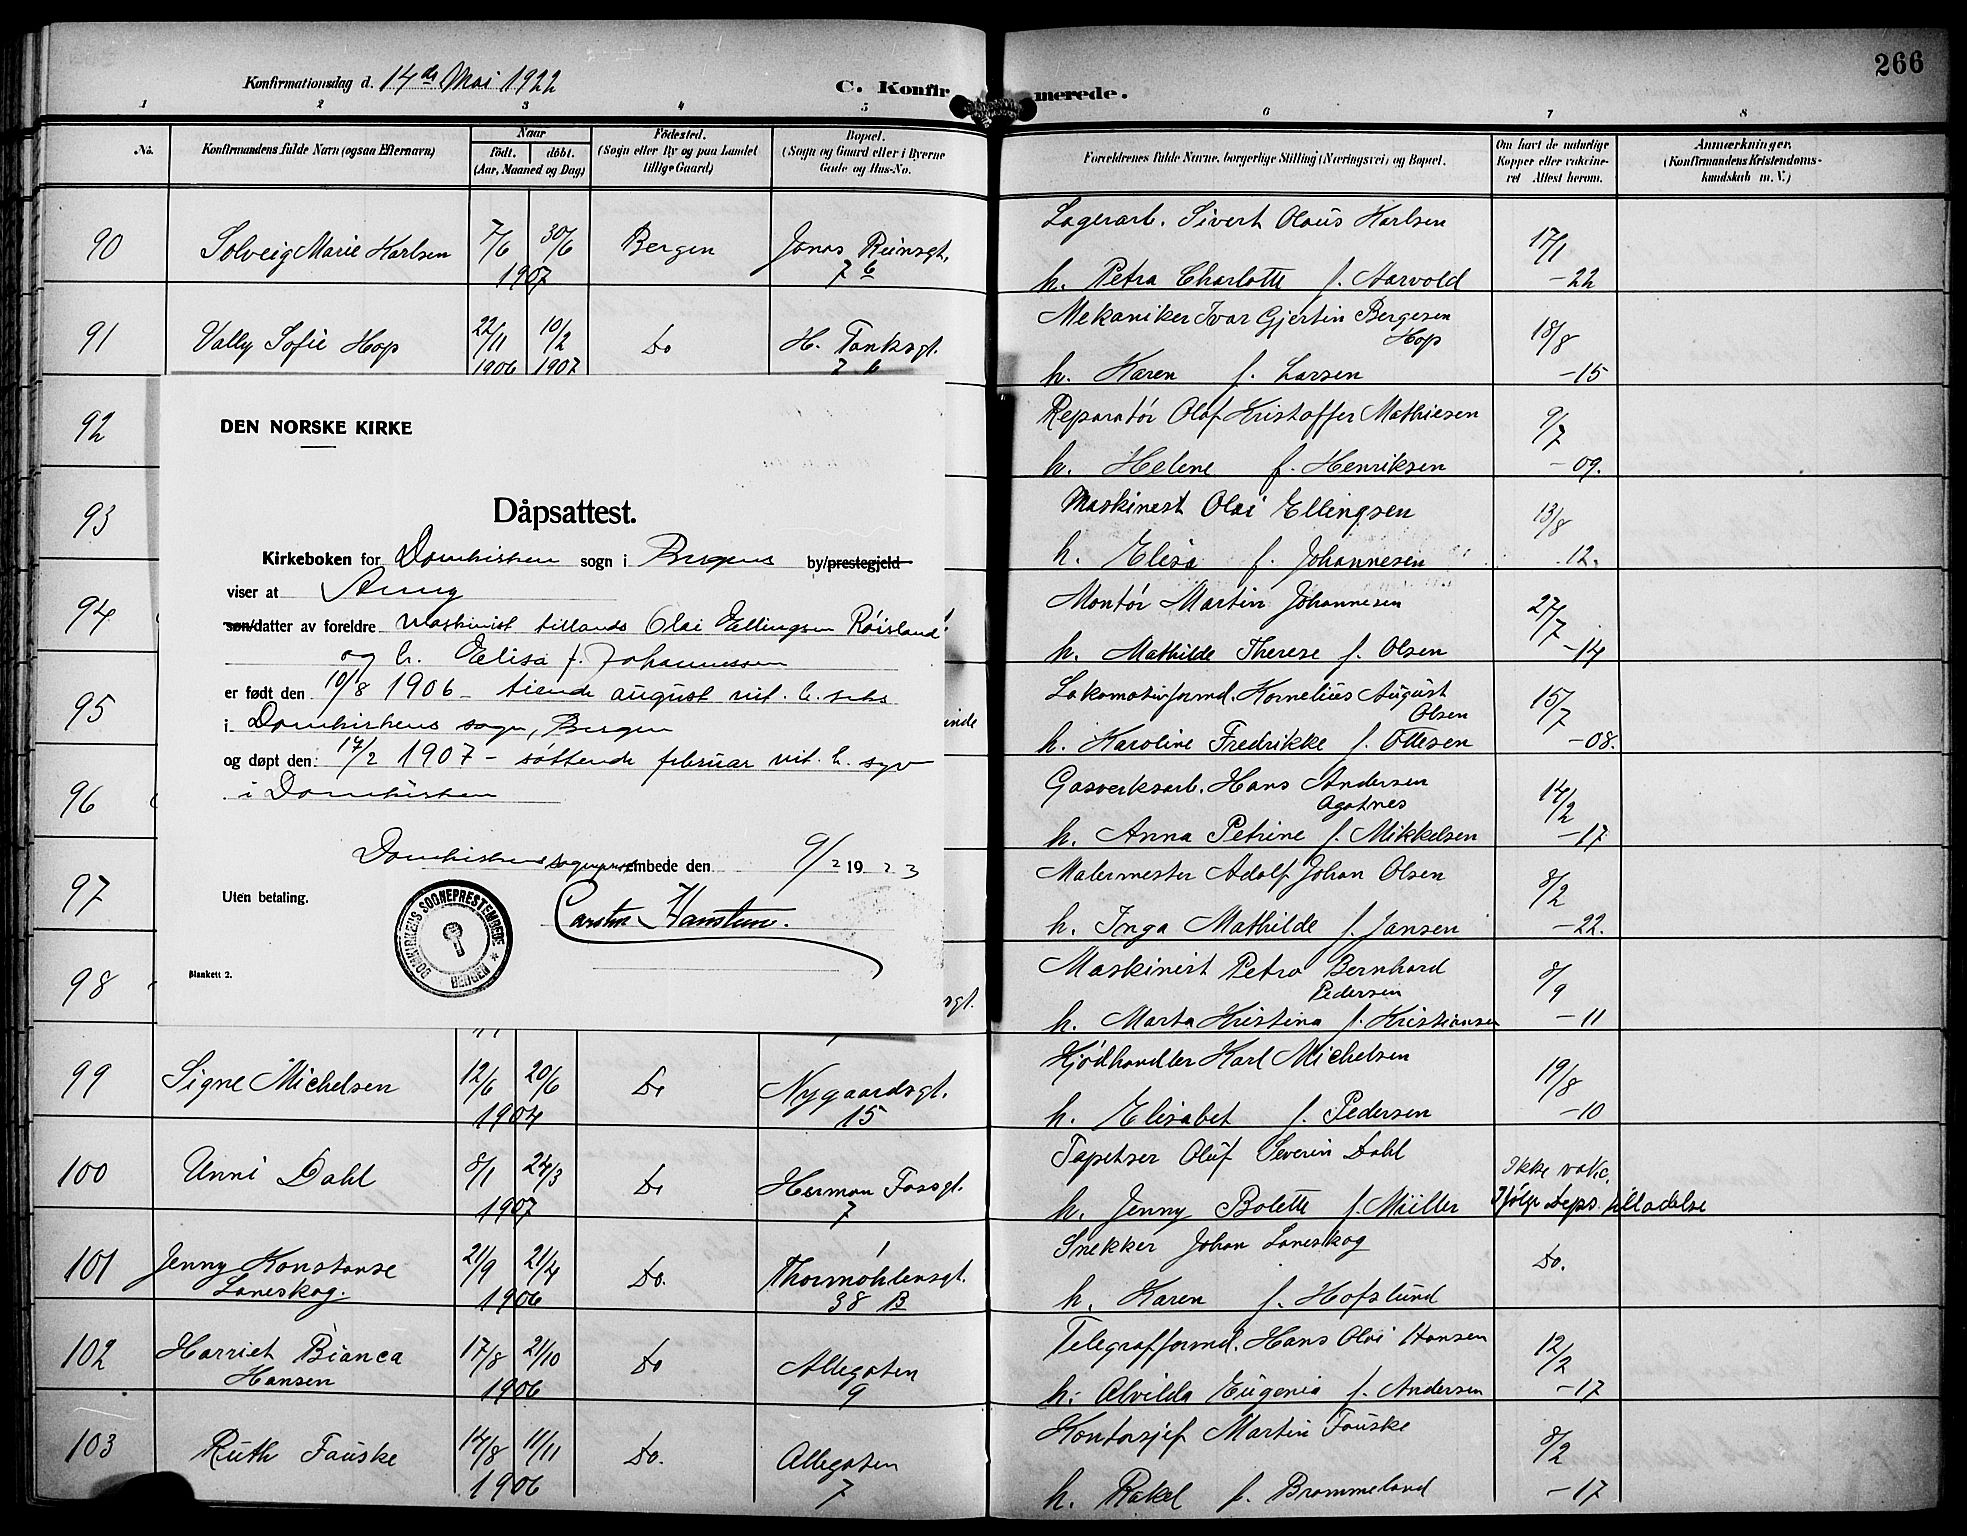 266
Konfirmationsdag d. 14de Mai 1922
C. Konfirmerede.
1 2 3 4 5 6 7 8
No.
Konfirmandens fulde Navn (ogsaa Efternavn)
Naar
født. døbt.
(Aar, Maaned og Dag)
Fødested.
(Sogn eller By og paa Landet
tillige Gaard)
Bopæl.
(Sogn og Gaard eller i Byerne
Gade og Hus-No.
Forældrenes fulde Navne, borgerlige Stilling (Næringsvei) og Bopæl.
Om havt de naturlige
Kopper eller vakcine-
ret Attest herom.
Anmærkninger.
(Konfirmandens Kristendoms-
kundskab m. V.)
90 Solveig Marie Karlsen 7/6 30/6 1907 Bergen Jonas Reinsgt. 7 b
Lagerarb. Sivert Olaus Karlsen
h. Petra Charlotte f. Aarvold 17/1 -22
91 Vally Sofie Hop 22/11 1906 10/2 1907 Do H. Tanksgt. 7 b
Mekaniker Ivar Gjertin Bergesen
Hop
h. Karen f. Larsen 18/8 -15
92
Reparatør Olaf Kristoffer Mathiesen
h. Helene f. Henriksen 9/7 -09.
93
Maskinest Olai Ellingsen
h. Elisa f. Johannesen 13/8 12.
94
Montør Martin Johannesen
h. Mathilde Therese f. Olsen 27/7 -14
95
Lokomotivformd. Kornelius August
Olsen
h. Karoline Fredrikke f. Ottesen 15/7 -08.
96
Gasverksarb. Hans Andersen
Agatnes
h. Anna Petrine f. Mikkelsen 14/2 -17
97
Malermester Adolf Johan Olsen
h. Inga Mathilde f. Jansen 8/2 -22.
98
Maskinist Petro Bernhard
Pedersen
h. Marta Kristina f. Kristiansen 8/9 -11
DEN NORSKE KIRKE
Dåpsattest.
Kirkeboken for Domkirken sogn i Bergens by/prestegjeld
viser at Anny
søn/datter av foreldre Maskinist tillands Olai Ellingsen Røisland
og h. Elisa f. Johannessen
er født den 10/8 1906 - tiende august nit. h. seks
i Domkirkens sogn, Bergen
og døpt den 17/2 1907 - søttende februar nit. h. syv
i Domkirken
Domkirkens sogneprestembede den 9/2 1923
Uten betaling.
Carsten Hansteen.
DOMKIRKENS SOGNEPRESTEMBEDE * BERGEN
Blankett 2.
99 Signe Michelsen 12/6 20/6 1904 Do Nygaardsgt. 15
Kjødhandler Karl Michelsen
h. Elisabet f. Pedersen 19/8 -10
100 Unni Dahl 8/1 24/3 1907 Do Herman Fossgt. 7
Tapetser Oluf Severin Dahl
h. Jenny Bolette f. Müller Ikke vakc. Ifølge Deps. tilladelse
101 Jenny Konstanse
Laneskog. 21/9 21/4 1906 Do. Thormøhlensgt. 38 B
Snekker Johan Laneskog
h. Karen f. Hofslund Do.
102 Harriet Bianca
Hansen 17/8 21/10 1906 Do Allegaten 9
Telegrafformd. Hans Olai Hansen
h. Alvilda Eugenia f. Andersen 12/2 -17
103 Ruth Fauske 14/8 11/11 1906 Do. Allegaten 7
Kontorsjef Martin Fauske
h. Rakel f. Brommeland 8/2 -17